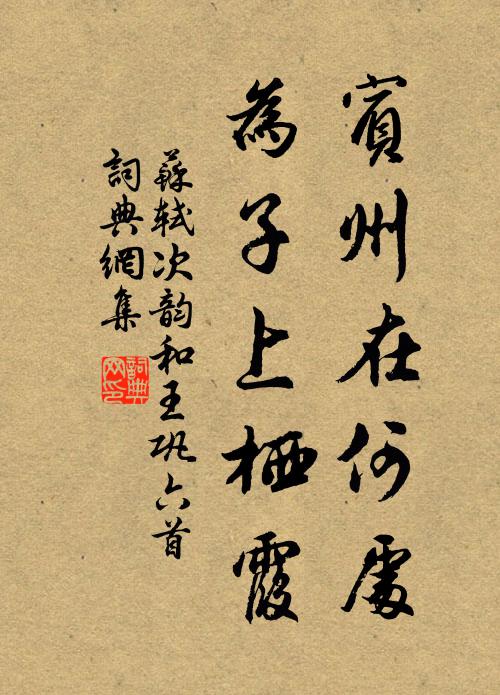 賓州在何處
為子上栖霞
蘇軾次韵和王巩六首
詞典網集
詞典网印